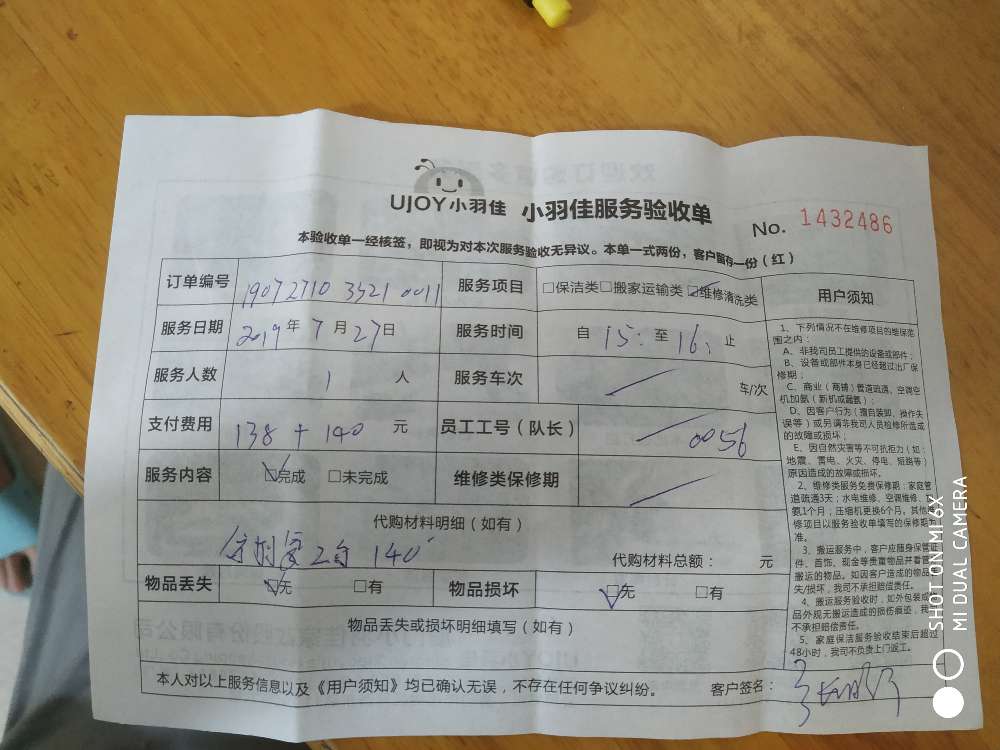 UJOY小羽佳 小羽佳服务验收单 No. 1432486
本验收单一经核签，即视为对本次服务验收无异议。本单一式两份，客户留存一份（红）
订单编号 19072710 3521 0011 服务项目 □保洁类□搬家运输类☑维修清洗类
服务日期 2019年7月27日 服务时间 自 15: 至 16: 止
服务人数 1 人 服务车次 / 车/次
支付费用 138 + 140 元 员工工号（队长） 0056
服务内容 ☑完成 □未完成 维修类保修期 /
代购材料明细（如有）
2台 140
代购材料总额： 元
物品丢失 ☑无 □有 物品损坏 ☑无 □有
物品丢失或损坏明细填写（如有）
本人对以上服务信息以及《用户须知》均已确认无误，不存在任何争议纠纷。 客户签名：
用户须知
1、下列情况不在维修项目的维保范
围之内：
A、非我司员工提供的设备或部件；
B、设备或部件本身已经超过出厂保
修期；
C、商业（商铺）管道疏通、空调空
机加氨（新机或藏氨）；
D、因客户行为（擅自装卸、操作失
误等）或另请非我司人员检修所造成
的故障或损坏；
E、因自然灾害等不可抗拒力（如：
地震、雷电、火灾、停电、短路等）
原因造成的故障或损坏。
2、维修类服务免费保修期：家庭管
道疏通3天；水电维修、空调维修、
氨1个月；压缩机更换6个月，其他维
修项目以服务验收单填写的保修期为
准。
3、搬运服务中，客户应随身保管证
件、首饰、现金等贵重物品并看管
搬运的物品。如因客户造成的物品丢
失/损坏，我司不承担赔偿责任。
4、搬运服务验收时，如外包装或物
品外观无搬运造成的损伤痕迹，我司
不承担赔偿责任。
5、家庭保洁服务验收结束后超过
48小时，我司不负责上门返工。
SHOT ON MI 6X
MI DUAL CAMERA